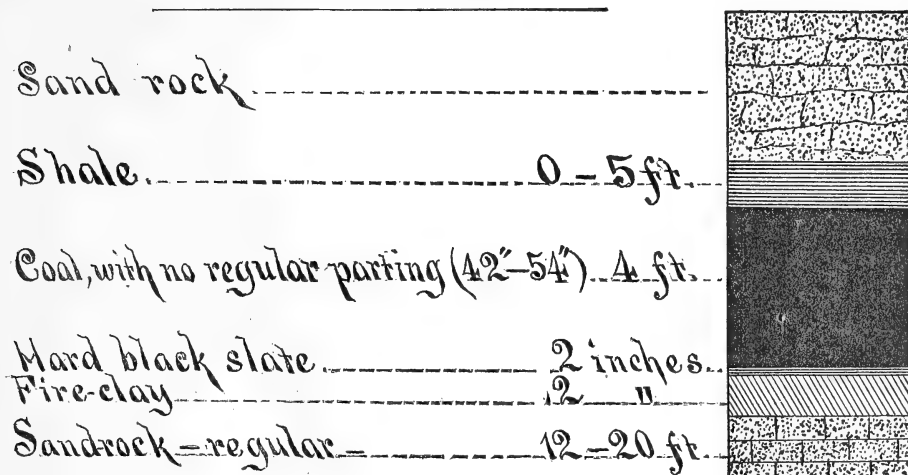 Sand rock
Shale. 0-5 ft.
Coal, with no regular parting (42"-54") 4 ft.
Hard black slate 2 inches.
Fire-clay 2 "
Sandrock-regular- 12-20 ft